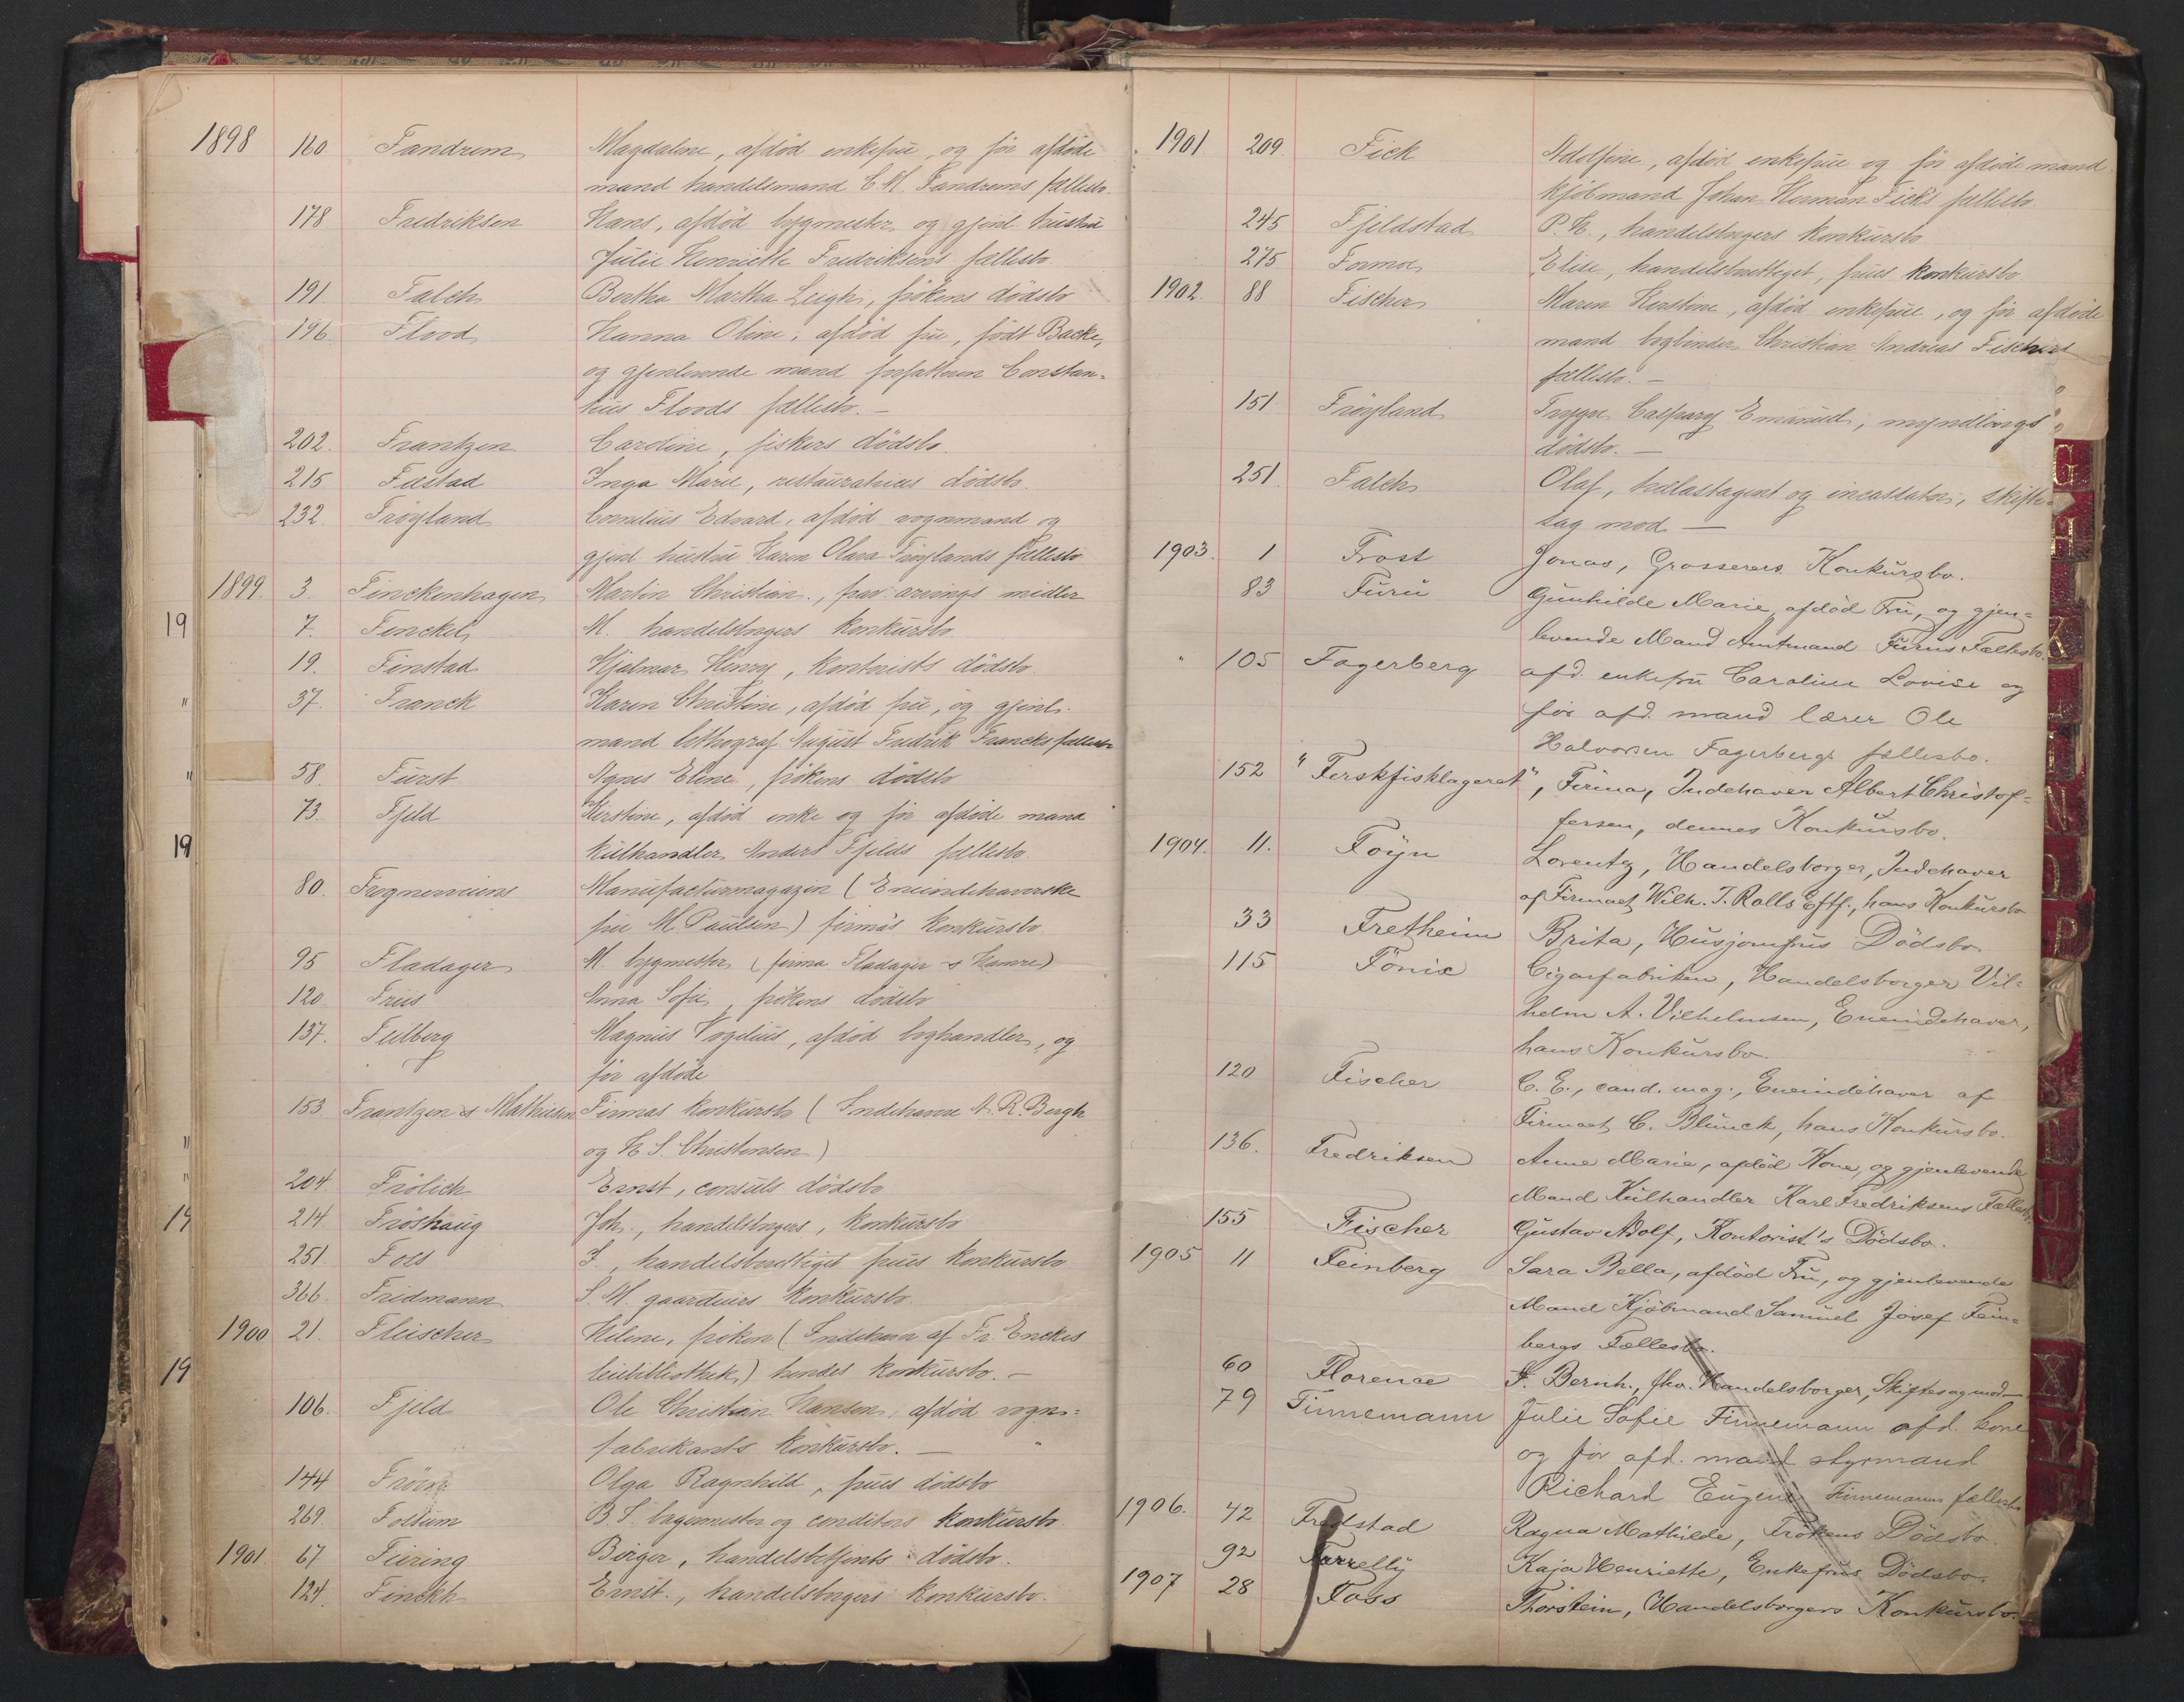 1898 160. Tandrem Magdalene, afdød enkefru, og før afdøde
mand handelsmand C. M. Tandrems fællesbo.
178. Fredriksen Hans, afdød bygmester, og gjenl. hustru
Julie Henriette Fredriksens fællesbo.
191. Falch Bertha Martha Leigh, frøkens dødsbo
196. Flood Hanna Oline, afdød fru, født Backe,
og gjenlevende mand forfatteren Constan=
tius Floods fællesbo. —
202. Frantzen Caroline, fiskers dødsbo.
215 Fastad Inga Marie, restauratrices dødsbo.
232. Frøyland Cornelius Edvard, afdød vognmand og
gjenl. hustru Karen Olava Frøylands fællesbo
1899. 3. Finckenhagen Martin Christian, arvings midler
19 7. Finckel M. handelsborgers konkursbo.
19. Finstad Hjalmar Henry, kontorists dødsbo.
" 37. Franck Karen Christine, afdød fru, og gjenl.
mand lithograf August Fredrik Francks fællesbo
" 58. Fürst Agnes Eline, frøkens dødsbo
73. Fjeld Kirstine, afdød enke og før afdøde mand
19 kulhandler Anders Fjelds fællesbo.
80. Frognerveiens Manufacturmagazin (Eneindehaverske
fru M. Paulsen) firma's konkursbo.
95 Fladager M. bygmester (firma Fladager & Hanre)
120 Friis Anna Sofie, frøkens dødsbo
137. Feilberg Magnus Vogelius, afdød boghandler, og
før afdøde
153. Frantzen & Mathiesen Firmas konkursbo (Indehavere A. R. Bergh
" og H. S. Christensen)
" 204. Frølich Ernst, consuls dødsbo
19 214. Frøshaug Joh., handelsborgers, konkursbo
251. Foss J., handelsberettiget frues konkursbo
366 Fridmann S. M. gaardeiers konkursbo.
1900 21. Fleischer Helene, frøken (Indehaver af Fr. Enckes
19 leiebibliothek) hendes konkursbo. —
106. Fjeld Ole Christian Hansen, afdød vogn=
fabrikants konkursbo. — "
144 Olga Ragnhild, frues dødsbo
269. Fossum B. S. bagermester og conditors konkursbo
1901. 67 Fiering Birger, handelsbetjents dødsbo.
124. Finckh Ernst., handelsborgers konkursbo.
1901 209 Fick Adolfine, afdød enkefrue og før afdøde mand
kjøbmand Johan Herman Fick's fællesbo.
245 Fjeldstad P. H., handelsborgers konkursbo
275 Formo Elise, handelsberettiget, frues konkursbo.
1902. 88 Fischer Maren Kirstine, afdød enkefrue, og før afdøde
mand bogbinder Christian Andreas Fischers
fællesbo. — "
151 Frøyland Trygve Caspary Emanuel, myndlings "
dødsbo. —
251. Falch Olaf, hælastagent og incassator, skifte=
sag mod —
1903. 1 Frost Jonas, Grosserers Konkursbo.
83 Furu Gunhilde Marie, afdød Fru, og gjen=
levende Mand Amtmand Furus Fællesbo.
" 105 Fagerberg afd. enkefru Caroline Lovise og
før afd. mand lærer Ole
Halvorsen Fagerbergs fællesbo.
152 "Ferskfisklageret", Firma, Indehaver Albert Christof=
fersen, dennes Konkursbo.
1904. 11. Föyn Lorentz, Handelsborger, Indehaver
af Firmaet Wilh. J. Rolls Eftf., hans Konkursbo
33 Fretheim Brita, Husjomfrus Dödsbo
115 Fönix Cigarfabriken, Handelsborger Vil=
helm A. Vilhelmsen, Eneindehaver,
hans Konkursbo.
120 Fischer C. E., cand. mag., Eneindehaver af
Firmaet C. Blunck, hans Konkursbo.
136. Fredriksen Anne Marie, afdød Kone, og gjenlevende
Mand Kulhandler Karl Fredriksens Fællesbo.
155 Fischer Gustav Adolf, Kontorist's Dödsbo.
1905 11 Feinberg Sara Bella, afdød Fru, og gjenlevende
Mand Kjøbmand Samuel Josef Fein=
bergs Fællesbo.
60 Florence F. Bernh., fhv. Handelsborger, Skiftesag mod —
79 Finnemann Julie Sofie Finnemann afd. kone
og før afd. mand styrmand
Richard Eugene Finnemanns fællesbo
1906. 42 Fredstad Ragna Mathilde, Frökens Dödsbo.
92 Farrelly Kaja Henriette, Enkefrus Dödsbo.
1907 28 Foss Thorstein, Handelsborgers Konkursbo.
G
H
K
L
N
O
P
S
T
U
V
X
Y